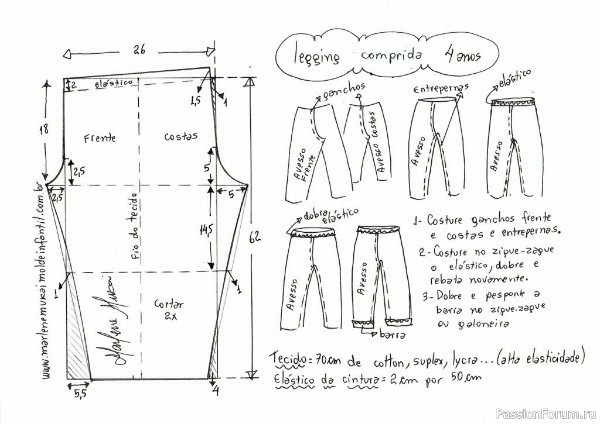 legging comprida 4 anos
26
2
elástico
1,5
1
18
Frente
Costas
2,5
5
2,5
5
Fio do tecido
14,5
62
1
1
Cortar
2x
Marlene Mukai
5,5
4
www.marlenemukaimoldeinfantil.com.br
ganchos
Avesso
Frente
Avesso Costas
Entrepernas
Avesso
elástico
Avesso
dobra elástico
Avesso
Avesso
barra
1- Costure ganchos frente
e costas e entrepernas.
2- Costure no zigue-zague
o elástico, dobre e
rebata novamente.
3- Dobre e pesponte a
barra no zigue-zague
ou galoneira
Tecido = 70cm de cotton, suplex, lycra... (alta elasticidade)
Elástico da cintura = 2cm por 50cm
PassionForum.ru